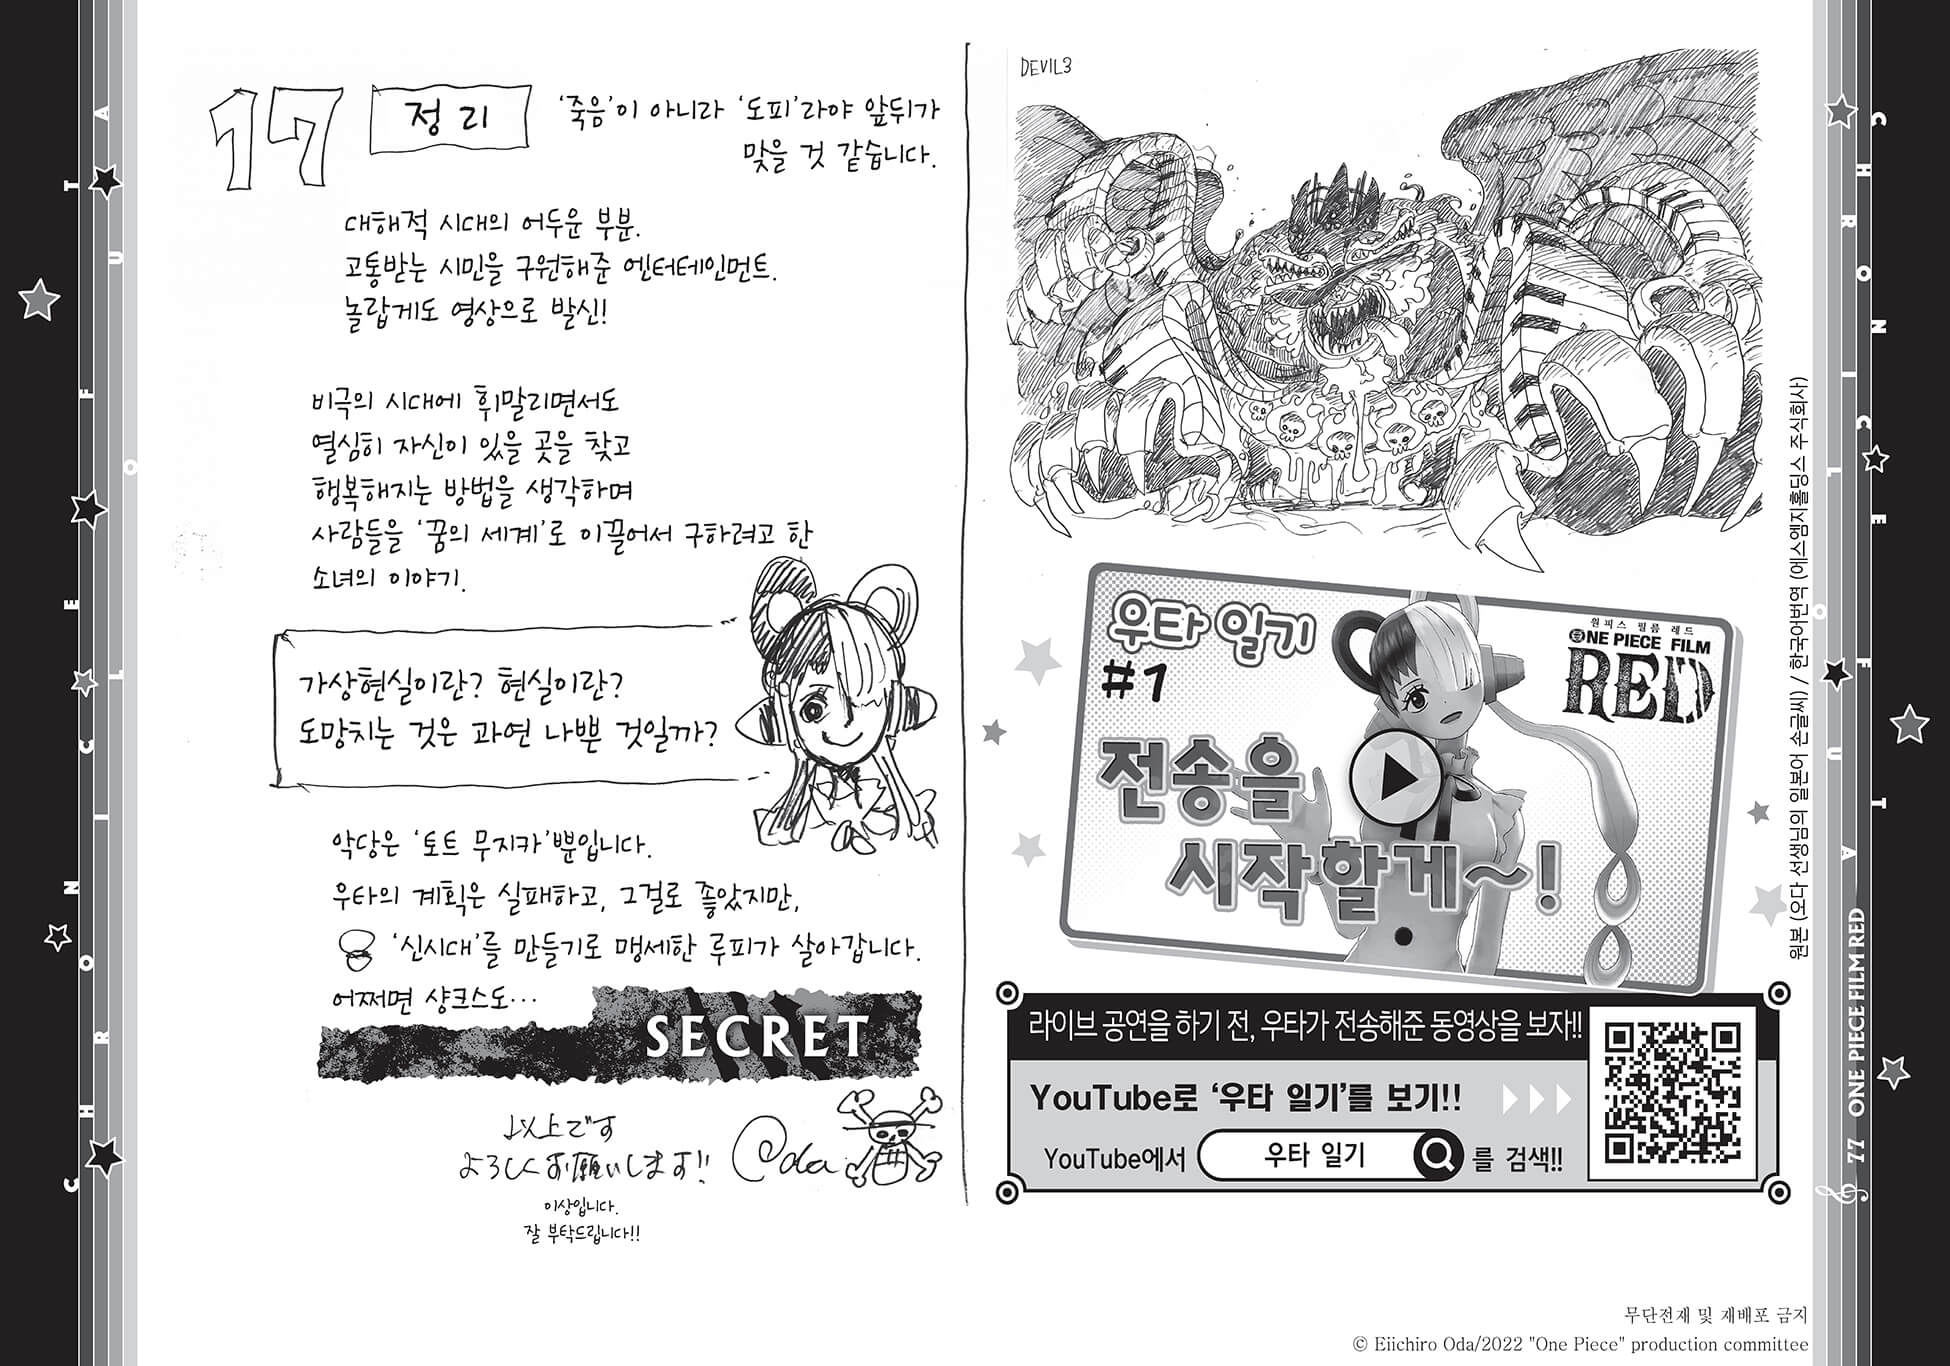 17
정리
‘죽음’이 아니라 ‘도피’라야 앞뒤가
맞을 것 같습니다.
대해적 시대의 어두운 부분.
고통받는 시민을 구원해준 엔터테인먼트.
놀랍게도 영상으로 발신!
비극의 시대에 휘말리면서도
열심히 자신이 있을 곳을 찾고
행복해지는 방법을 생각하며
사람들을 ‘꿈의 세계’로 이끌어서 구하려고 한
소녀의 이야기.
가상현실이란? 현실이란?
도망치는 것은 과연 나쁜 것일까?
악당은 ‘토트 무지카’뿐입니다.
우타의 계획은 실패하고, 그걸로 좋았지만,
‘신시대’를 만들기로 맹세한 루피가 살아갑니다.
어쩌면 샹크스도…
SECRET
以上です
よろしくお願いします!!
Oda
이상입니다.
잘 부탁드립니다!!
DEVIL3
우타 일기
#1
원피스 필름 레드
ONE PIECE FILM
RED
전송을
시작할게~!
라이브 공연을 하기 전, 우타가 전송해준 동영상을 보자!!
YouTube로 ‘우타 일기’를 보기!!
YouTube에서 우타 일기 를 검색!!
원본 (오다 선생님의 일본어 손글씨) / 한국어번역 (에스엠지홀딩스 주식회사)
CHRONICLE OF UTA
CHRONICLE OF UTA
77 ONE PIECE FILM RED
무단전재 및 재배포 금지
© Eiichiro Oda/2022 "One Piece" production committee